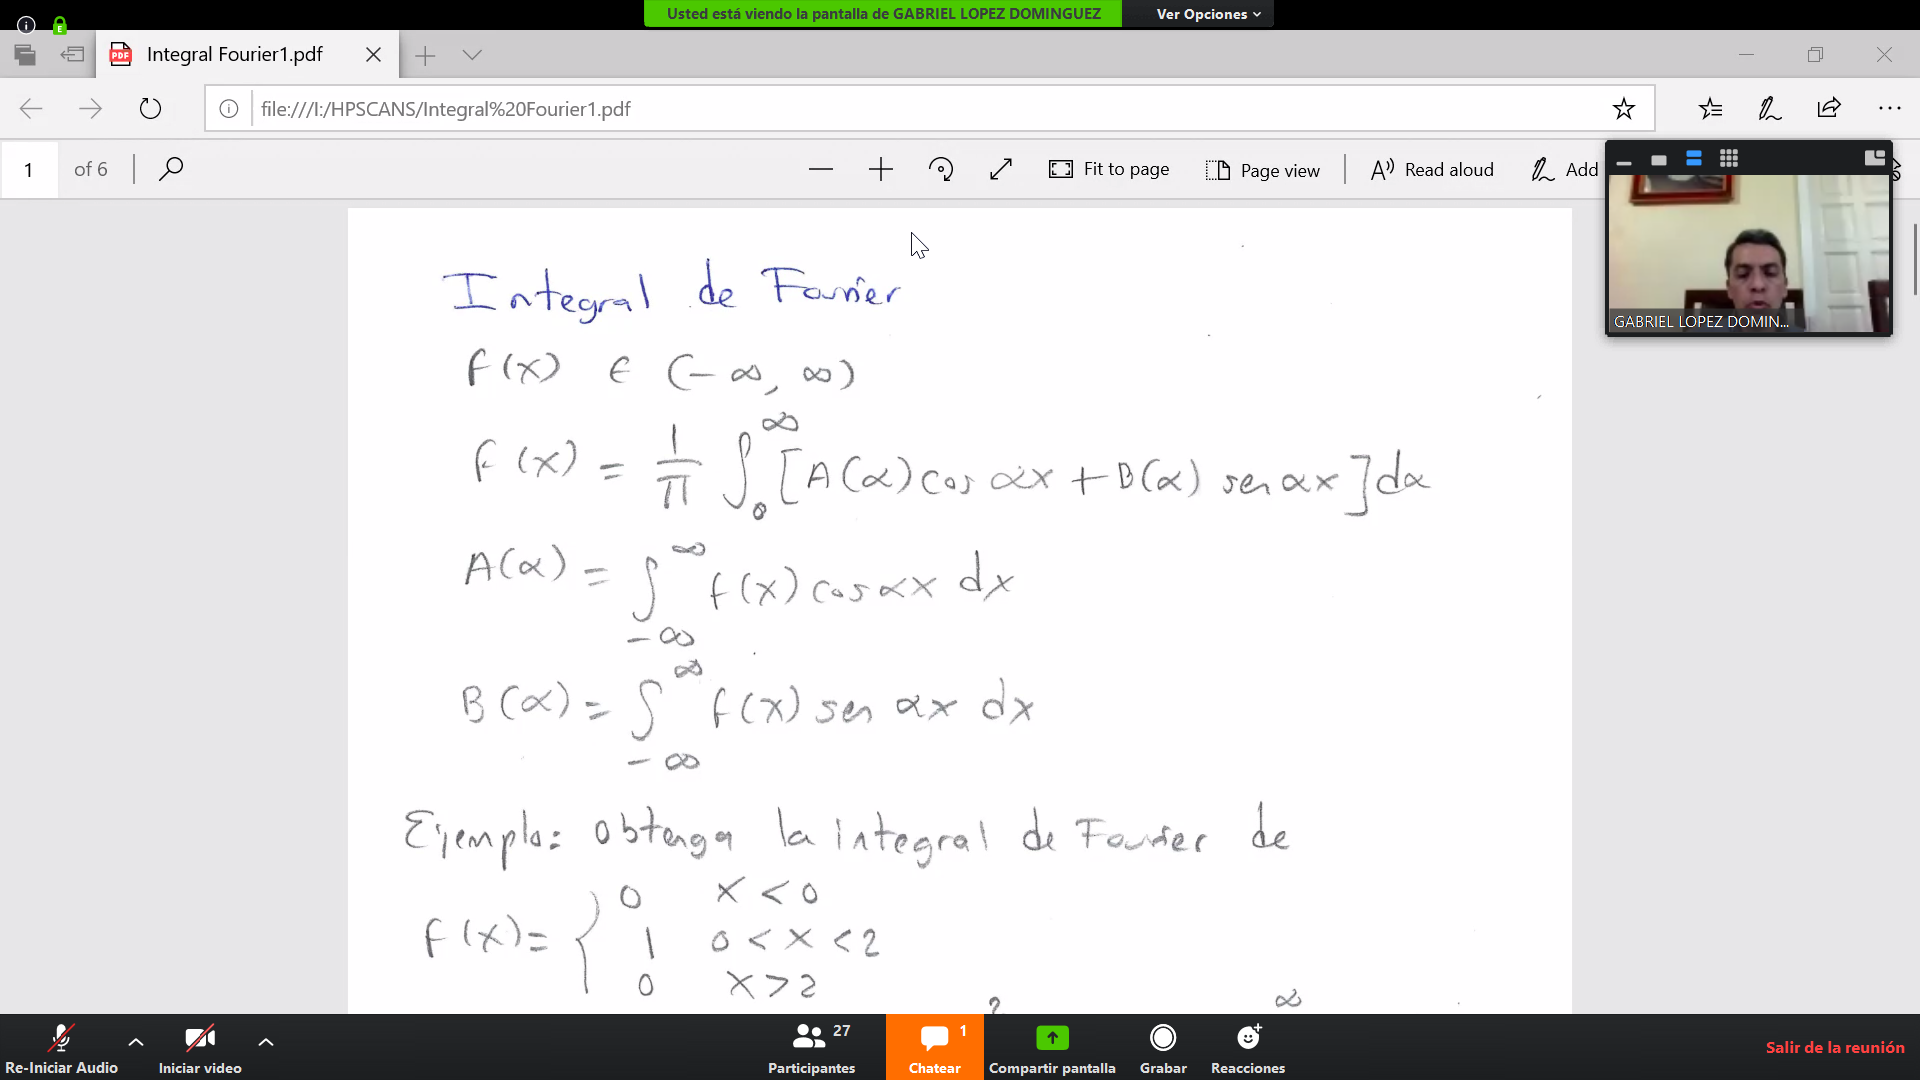 Usted está viendo la pantalla de GABRIEL LOPEZ DOMINGUEZ
Ver Opciones
Integral Fourier1.pdf
file:///I:/HPSCANS/Integral%20Fourier1.pdf
1 of 6
Fit to page
Page view
Read aloud
Add
GABRIEL LOPEZ DOMIN...
Integral de Fourier
f(x) ∈ (-∞, ∞)
f(x) = 1/π ∫₀^∞ [A(α) cos αx + B(α) sen αx] dα
A(α) = ∫_{-∞}^∞ f(x) cos αx dx
B(α) = ∫_{-∞}^∞ f(x) sen αx dx
Ejemplo: Obtenga la integral de Fourier de
f(x) = { 0 x < 0
1 0 < x < 2
0 x > 2
2 ∞
27
1
Re-Iniciar Audio
Iniciar video
Participantes
Chatear
Compartir pantalla
Grabar
Reacciones
Salir de la reunión